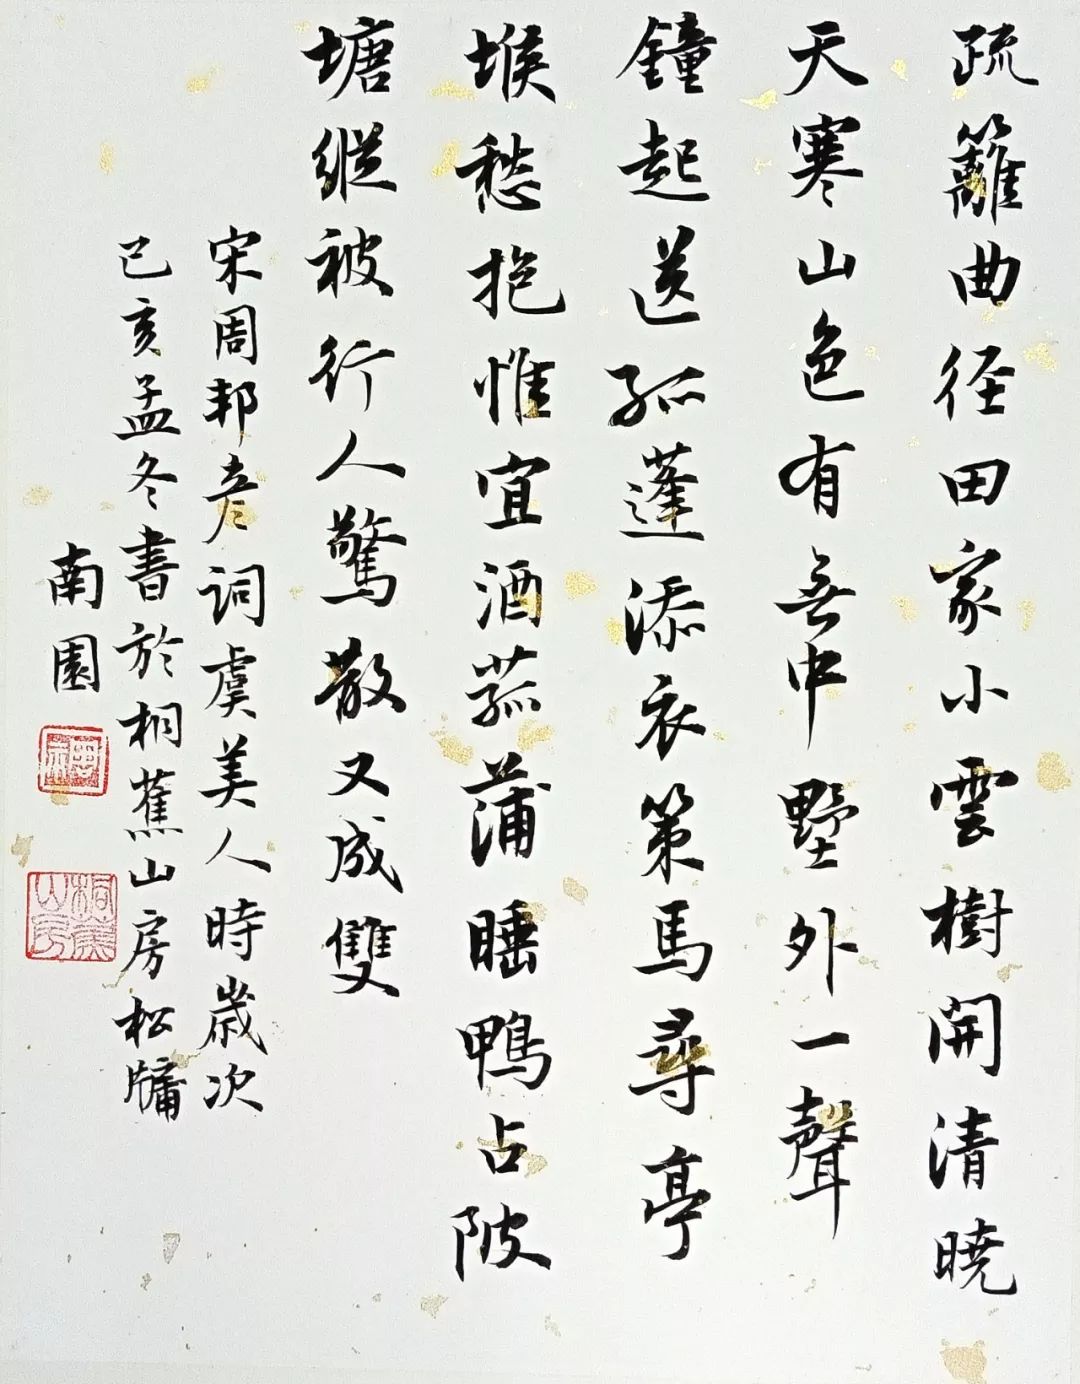 疏籬曲径田家小雲樹開清曉
天寒山色有无中墅外一聲
鐘起送孤蓬添衣策馬尋亭
堠愁抱惟宜酒菰蒲睡鴨占陂
塘縱被行人驚散又成雙
宋周邦彦词虞美人時歲次
己亥孟冬書於桐蕉山房松牖
南園
桐蕉山房